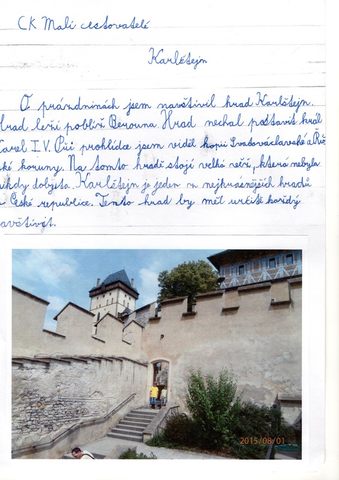 CK. Malí cestovatelé
Karlštejn
O prázdninách jsem navštívil hrad Karlštejn.
Hrad leží poblíž Berouna. Hrad nechal postavit král
Karel IV. Při prohlídce jsem viděl kopii Svatováclavské a Řím
ské koruny. Na tomto hradě stojí velká věž, která nebyla
nikdy dobyta. Karlštejn je jeden z nejkrásnějších hradů
v České republice. Tento hrad by měl určitě každý
navštívit.
2015/08/01